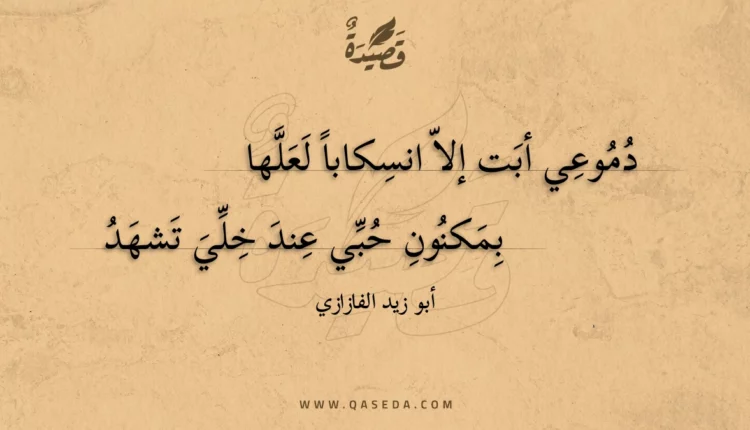 قَصِيْدَةٌ
دُمُوعِي أبَت إلاّ انسِكاباً لَعَلَّها
بِمَكنُونِ حُبِّي عِندَ خِلِّيَ تَشهَدُ
أبو زيد الفازازي
WWW.QASEDA.COM